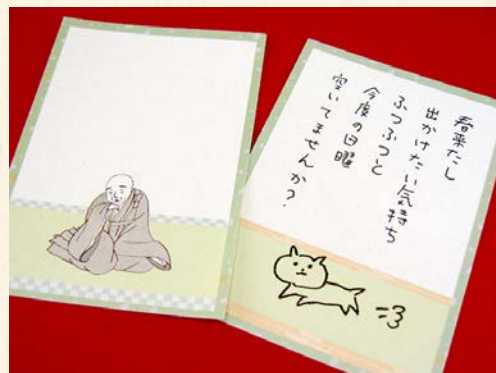 春来たし
出かけたい気持ち
ふつふつと
今度の日曜
空いてませんか？